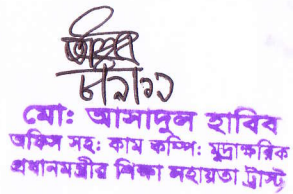 মো: আসাদুল হাবিব
অফিস সহ: কাম কম্পি: মুদ্রাক্ষরিক
প্রধানমন্ত্রীর শিক্ষা সহায়তা ট্রাস্ট